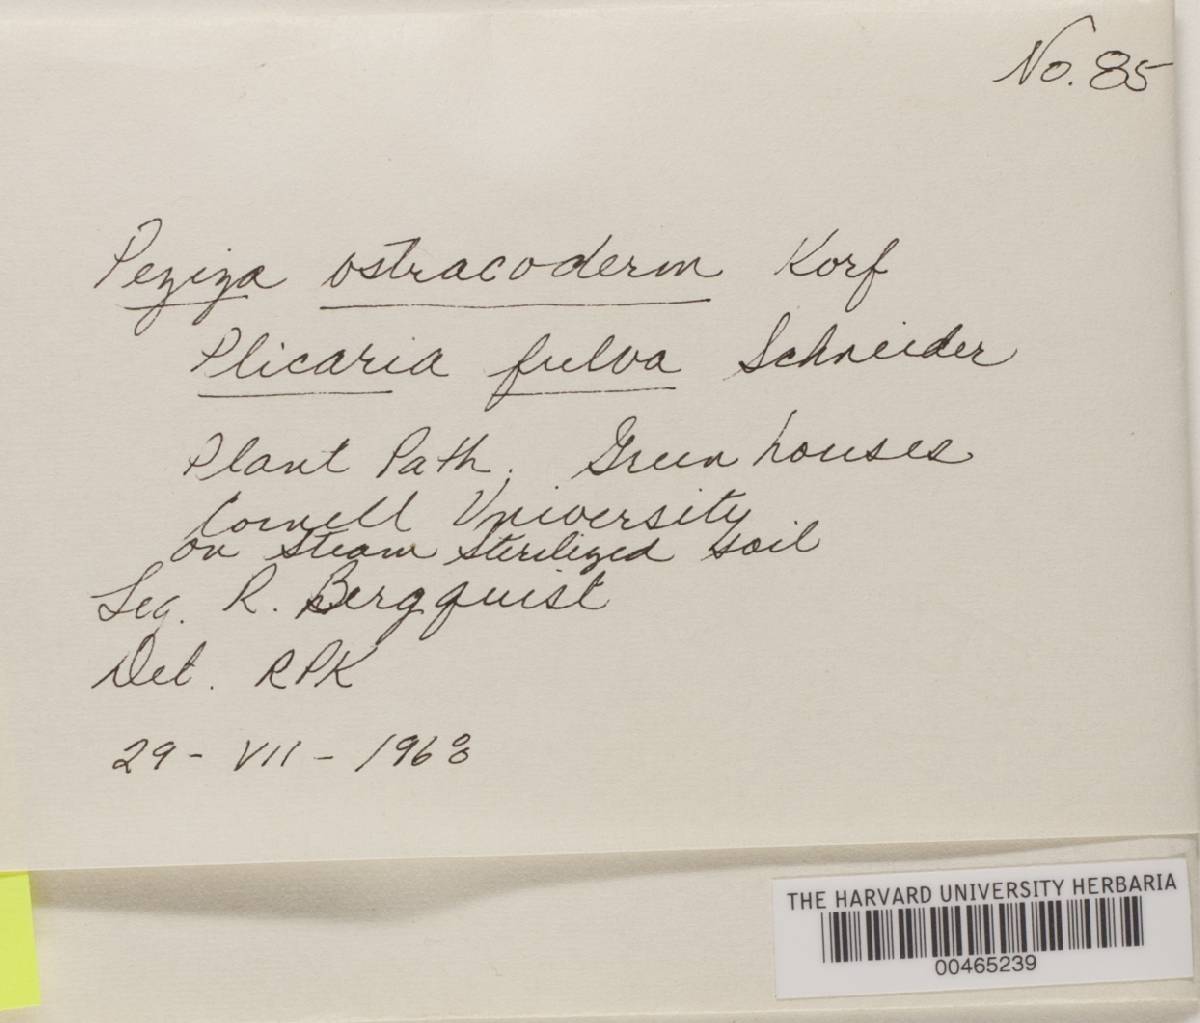 No. 85
Peziza ostracoderm Korf
Plicaria fulva Schneider
Plant Path. Greenhouses
Cornell University
on steam sterilized soil
Leg. R. Bergquist
Det. RPK
29 - VII - 1968
THE HARVARD UNIVERSITY HERBARIA
00465239